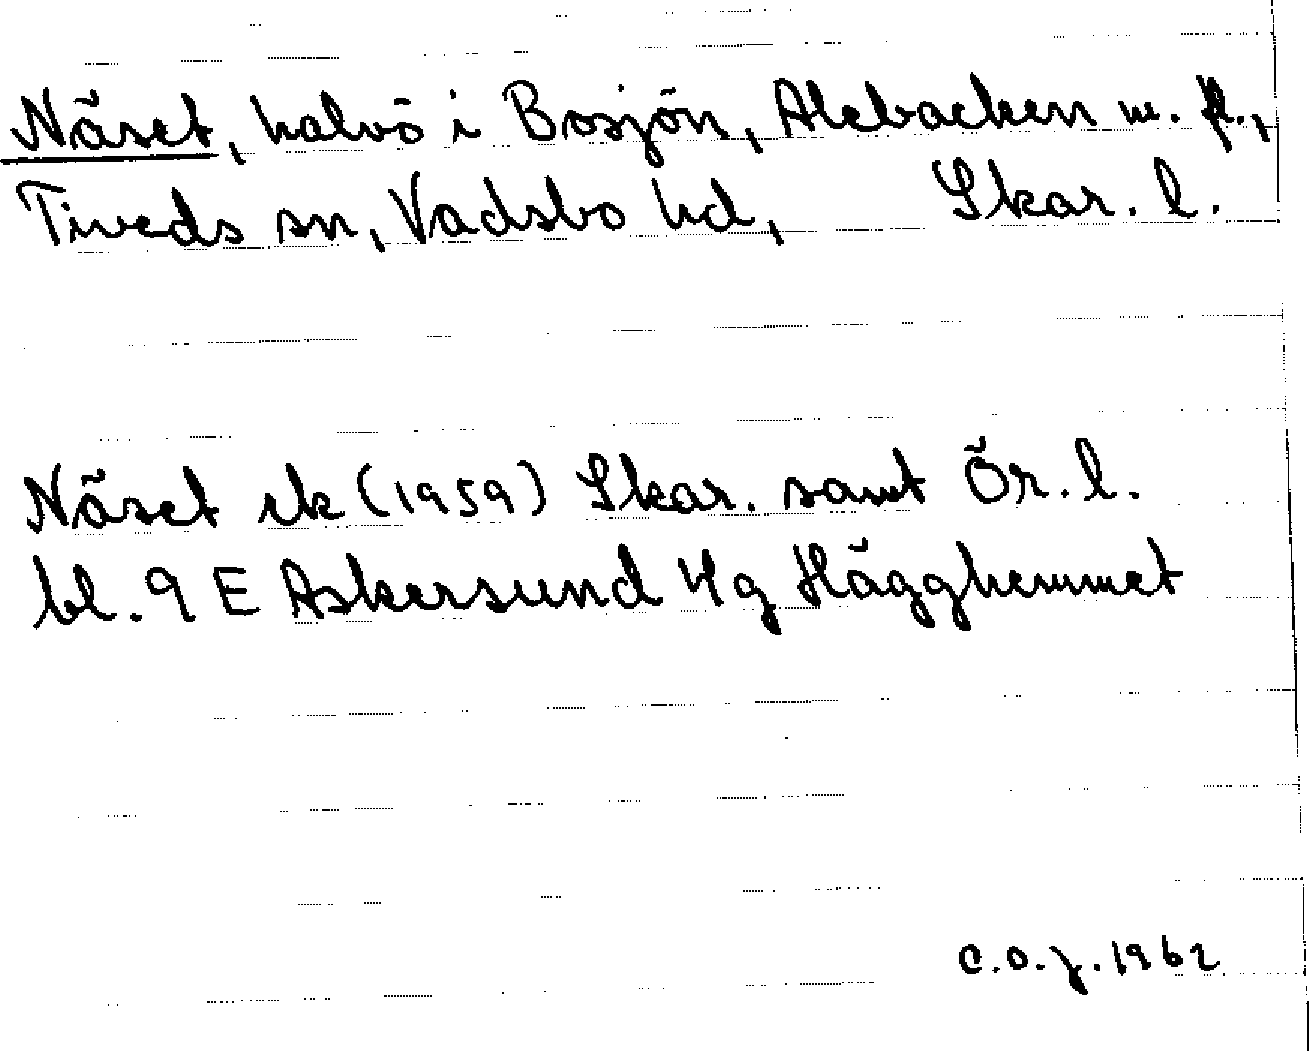 Näset, halvö i Bosjön, Alebacken m. fl.,
Tiveds sn, Vadsbo hd, Skar. l.
Näset ek (1959) Skar. samt Ör. l.
bl. 9 E Askersund 4g Hägghemmet
C.O.J. 1962